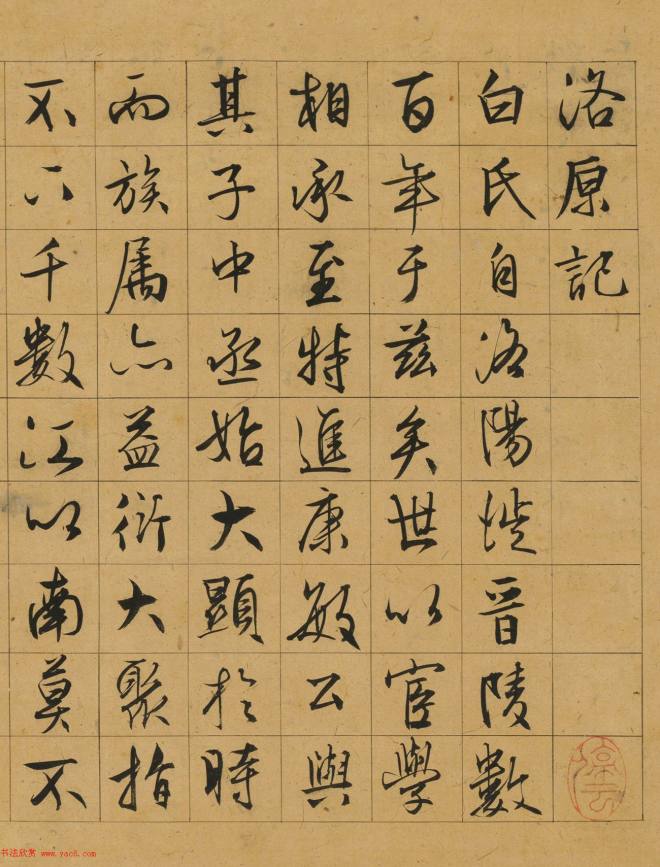 洛原記
白氏自洛陽徙晉陵數
百年于兹矣世以宦學
相承至特進康敏公與
其子中丞始大顯於時
而族屬亦益衍大聚指
不下千數江以南莫不
书法欣赏 www.yac8.com